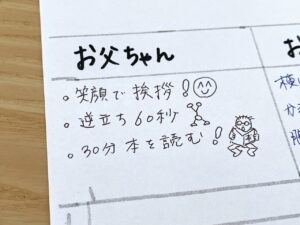 お父ちゃん
・笑顔で挨拶!
・逆立ち60秒
・30分本を読む!
お